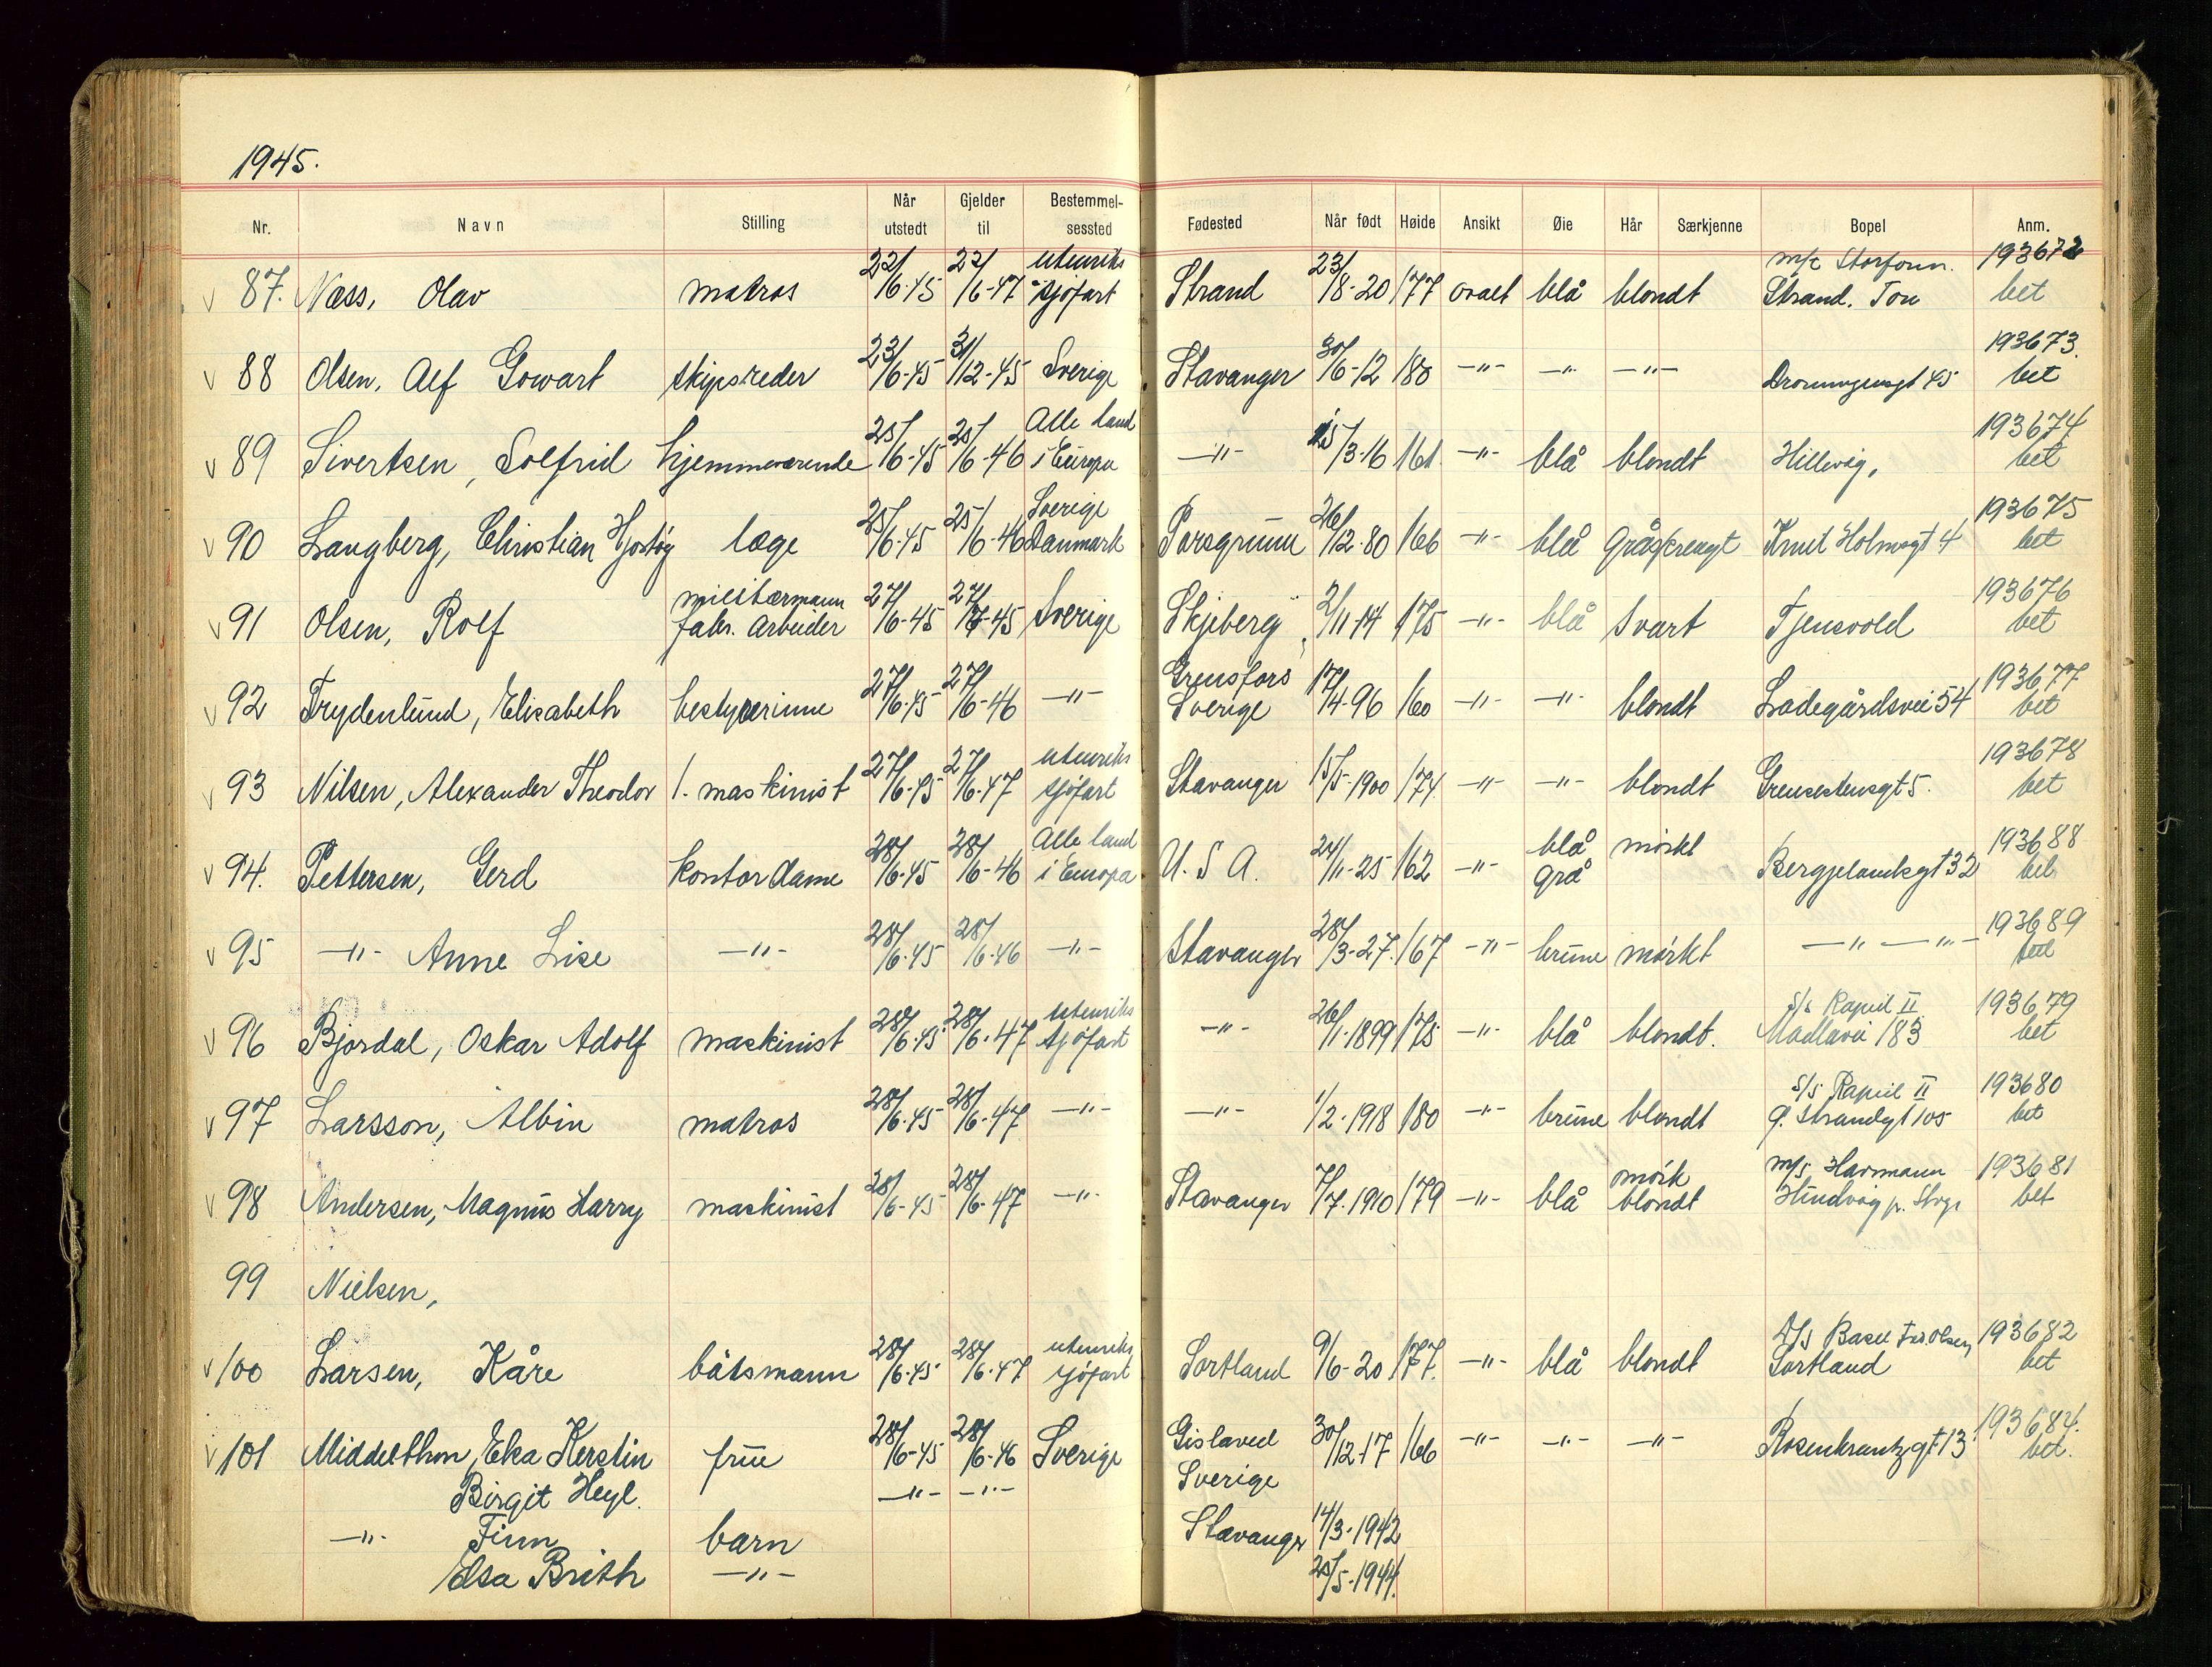 1945.
Nr. Navn Stilling Når utstedt Gjelder til Bestemmelsessted Fødested Når født Høide Ansikt Øie Hår Særkjenne Bopel Anm.
v 87. Næss, Olav matros 22/6-45 22/6-47 utenriks sjöfart Strand 23/8-20 177 ovalt blå blondt Strand. Tou 193672 bet
v 88 Olsen, Alf Gowart skipsreder 23/6-45 31/12-45 Sverige Stavanger 30/6-12 180 -"- -"- -"- Dronningensgt 45 193673. bet
v 89 Sivertsen, Solfrid hjemmeværende 25/6-45 25/6-46 Alle land i Europa -"- 15/3-16 161 -"- blå blondt Hillevåg, 193674 bet
v 90 Langberg, Christian læge 25/6-45 25/6-46 Sverige Danmark Porsgrunn 26/12-80 166 -"- blå gråsprengt Knut Holmsgt 4 193675 bet
v 91 Olsen, Rolf militærmann fabr. arbeider 27/6-45 27/7-45 Sverige Skjeberg 2/11-14 175 -"- blå svart Tjensvold 193676 bet
v 92 Frydenlund, Elisabeth bestyrerinne 27/6-45 27/6-46 -"- Grensfors Sverige 17/4-96 160 -"- -"- blondt Ladegårdsvei 54 193677 bet
v 93 Nilsen, Alexander Theodor 1. maskinist 27/6-45 27/6-47 utenriks sjöfart Stavanger 15/5-1900 174 -"- -"- blondt Grensestensgt 5. 193678 bet
v 94. Pettersen, Gerd kontordame 28/6-45 28/6-46 Alle land i Europa U.S.A. 24/11-25 162 -"- blå grå mörkt Bergjelandsgt 32 193688 bet
v 95 -"- Anne Lise -"- 28/6-45 28/6-46 -"- Stavanger 28/3-27. 167 -"- brune mörkt -"- -"- 193689 bet
v 96 Bjordal, Oskar Adolf maskinist 28/6-45 28/6-47 utenriks sjöfart -"- 26/1-1899 175 -"- blå blondt. s/s Rapid II Madlavei 183 193679 bet
v 97 Larsson, Albin matros 28/6-45 28/6-47 -"- -"- 1/2-1918 180 -"- brune blondt s/s Rapid II Ö. Strandgt 105 193680 bet
v 98 Andersen, Magnus Harry maskinist 28/6-45 28/6-47 -"- Stavanger 7/7-1910 179 -"- blå mörk blondt m/s Havmann Hundvåg p. Stvgr 193681 bet
99 Nielsen,
v 100 Larsen, Kåre båtsmann 28/6-45 28/6-47 utenriks sjöfart Sortland 9/6-20 177. -"- blå blondt Sortland 193682 bet
v 101 Middelthon, Elsa Kerstin frue 28/6-45 28/6-46 Sverige Gislaved Sverige 30/12-17 166 -"- -"- -"- Rosenkrantzgt 13 193684. bet.
Birgit Heyl. -"- -"-
-"- Finn barn Stavanger 14/3-1942
Elsa Brith -"- 25/5-1944.